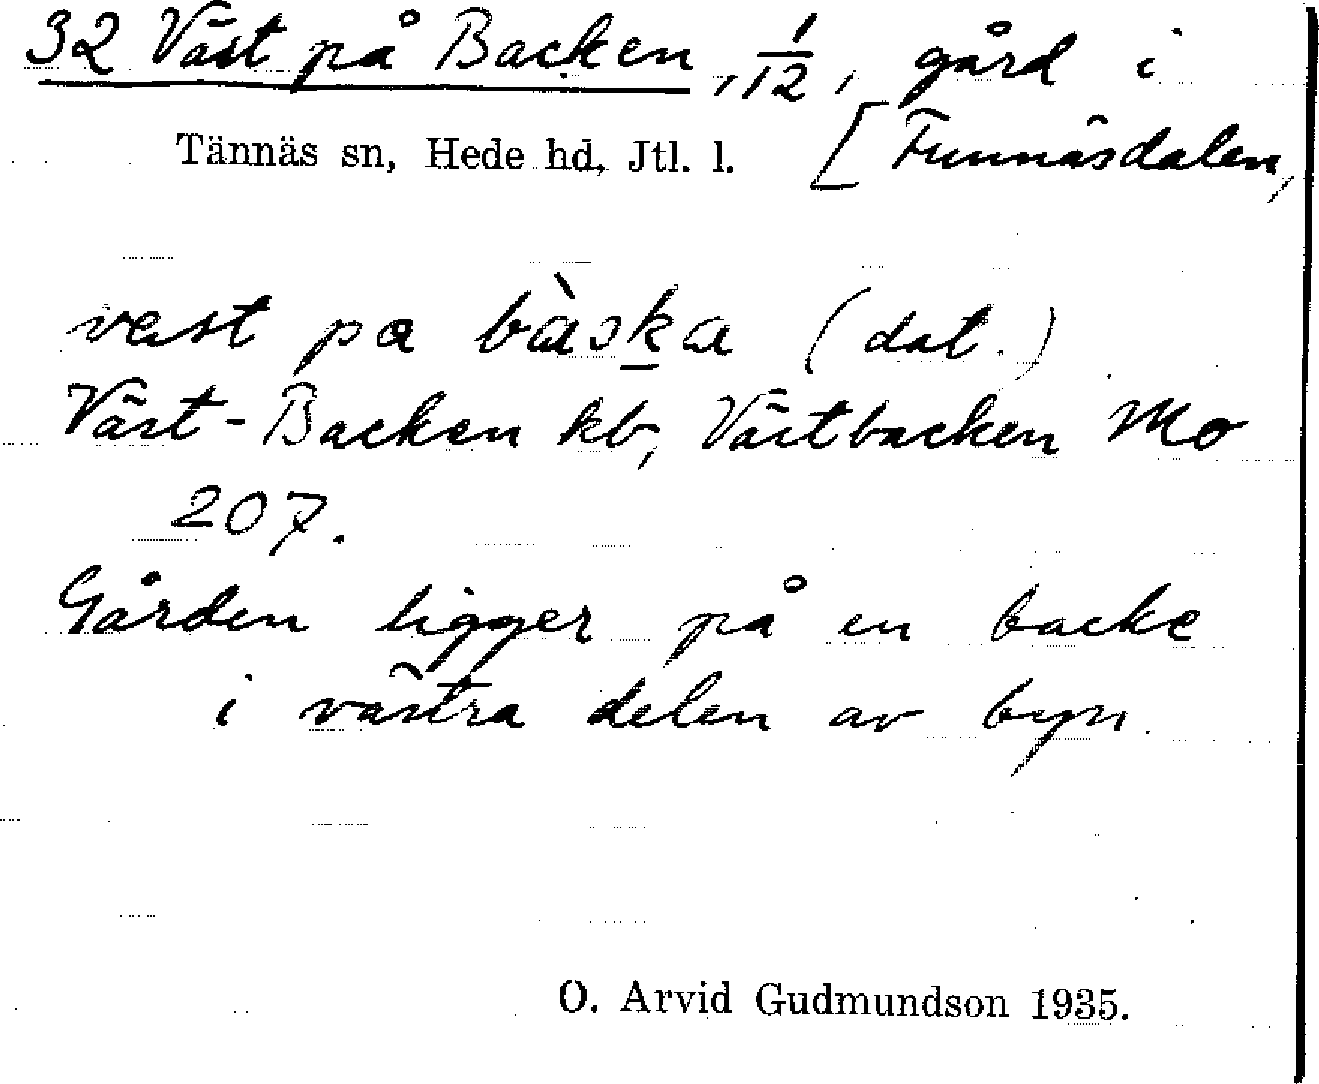 32 Väst på Backen, 1/12, gård i
Tännäs sn, Hede hd, Jtl. l. [Funnäsdalen,
väst pa bàska (dat.)
Väst-Backen kb, Västbacken Mo
207.
Gården ligger på en backe
i västra delen av byn.
O. Arvid Gudmundson 1935.